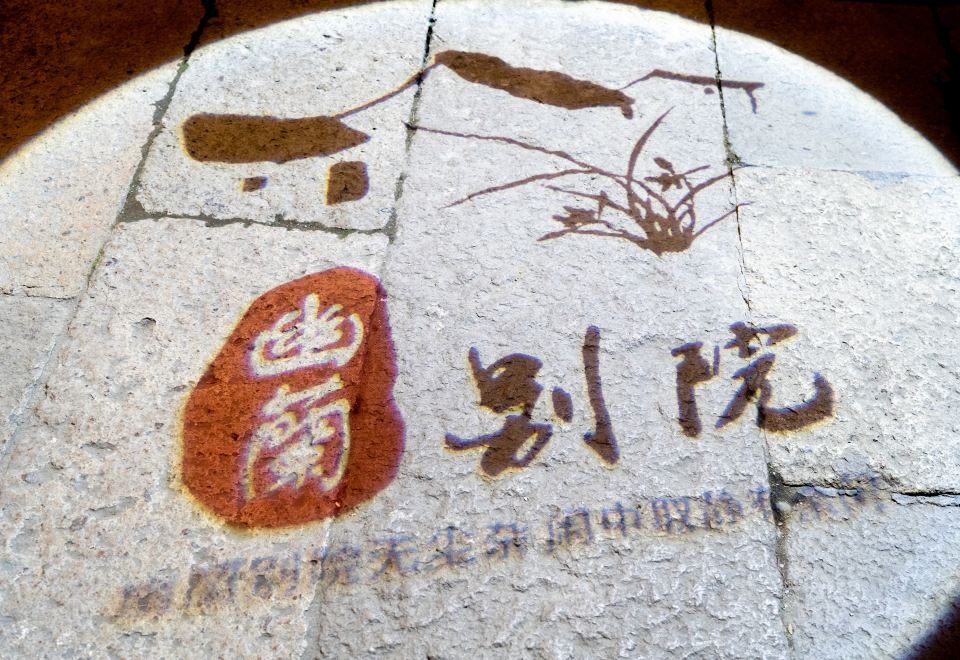 幽蘭别院
幽蘭别院无尘杂 闹中取静有余闲